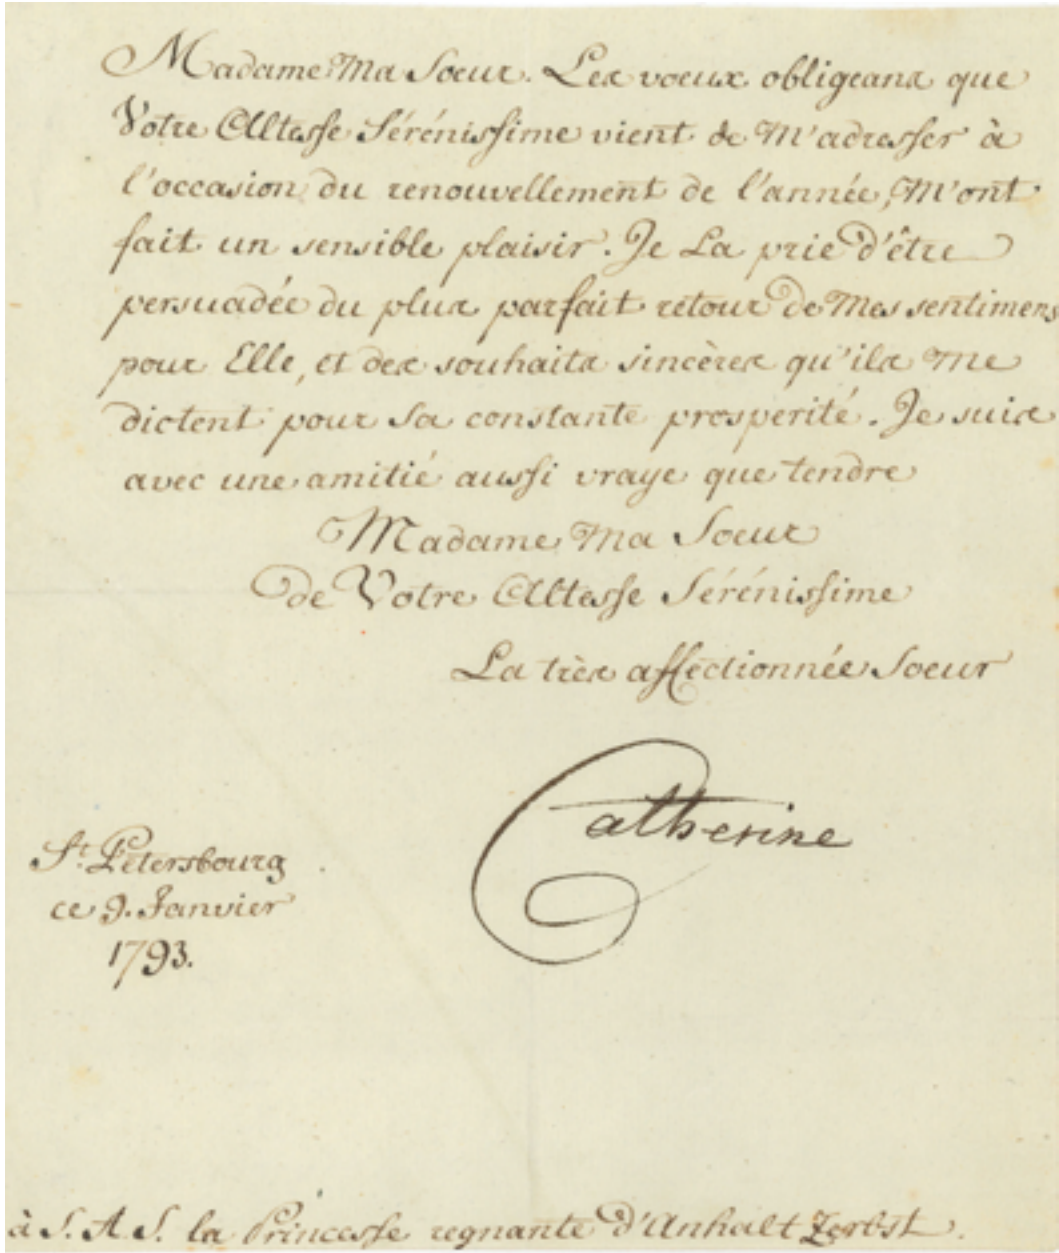 Madame Ma Soeur. Les voeux obligeans que
Votre Altesse Sérénissime vient de M'adresser à
l'occasion du renouvellement de l'année, M'ont
fait un sensible plaisir. Je La prie d'être
persuadée du plus parfait retour de Mes sentimens
pour Elle, et des souhaits sincères qu'ils Me
dictent pour Sa constante prosperité. Je suis
avec une amitié aussi vraye que tendre
Madame Ma Soeur
de Votre Altesse Sérénissime
La très affectionnée Soeur
Catherine
St. Petersbourg
ce 9. Janvier
1793.
à S. A S. la Princesse regnante d'Anhalt Zerbst.